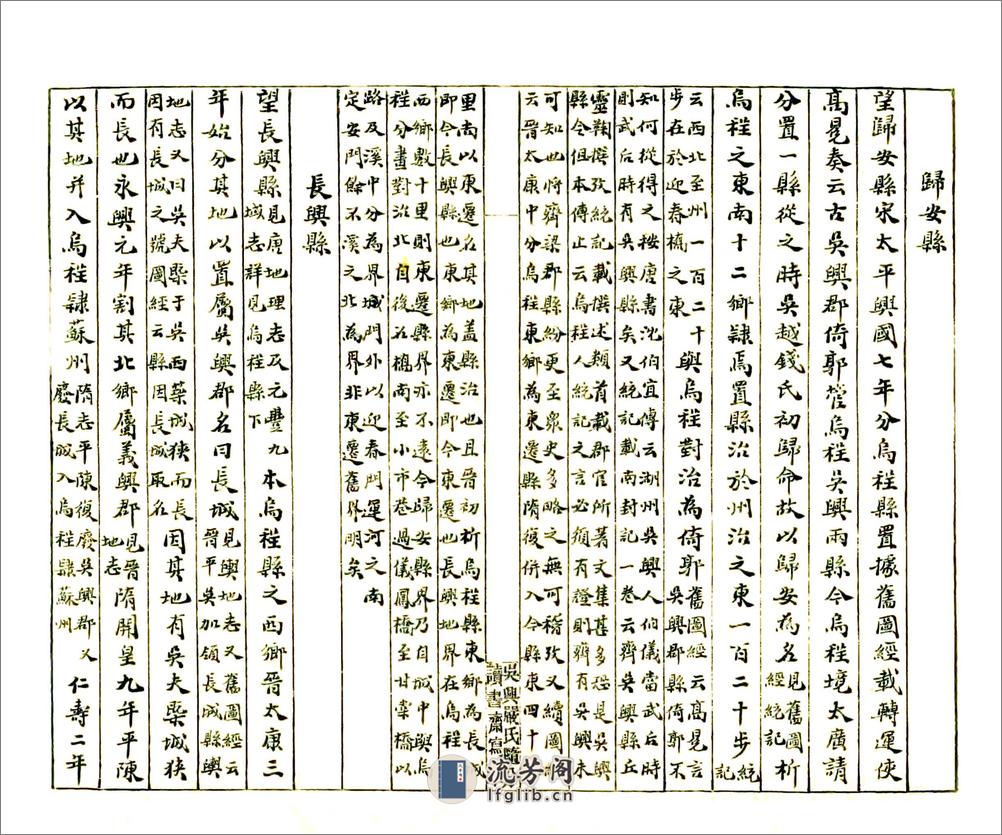 歸安縣
望歸安縣宋太平興國七年分烏程縣置據舊圖經載轉運使
高冕奏云古吳興郡倚郭管烏程吳興兩縣今烏程境太廣請
分置一縣從之時吳越錢氏初歸命故以歸安為名見舊圖經統記析
烏程之東南十二鄉隸焉置縣治於州治之東一百二十步統記
云西北至州一百二十步在於迎春橋之東與烏程對治為倚郭舊圖經云高冕言吳興郡縣倚郭不
知何從得之按唐書沈伯宜傳云湖州吳興人伯儀當武后時
則武后時有吳興縣矣又統記載南封記一卷云齊吳興縣丘
靈鞠撰攷統記載撰述類首載郡官所著文集甚多恐是吳興
縣令但本傳止云烏程人統記之言必須有證則齊有吳興未
可知也將齊梁郡縣紛更至眾史多略之無可稽攷又續圖經
云晉太康中分烏程東鄉為東遷縣隋復併入今縣東四十
吳興嚴氏
讀書齋寫
里尚以東遷名其地蓋縣治也且晉初析烏程縣東鄉為長城
即今長興縣也東鄉為東遷即今東遷也長興地界在烏程
西鄉數十里則東遷縣界亦不遠今歸安縣界乃自城中與烏
程分畫對治北自後石橋南至小市巷過儀鳳橋至甘棠橋以
路及溪中分為界城門外以迎春門運河之南
定安門餘不溪之北為界非東遷舊界明矣
長興縣
望長興縣見唐地理志及元豐九域志詳見烏程縣下本烏程縣之西鄉晉太康三
年始分其地以置屬吳興郡名曰長城見輿地志又舊圖經云晉平吳加領長城縣輿
地志又曰吳夫槩于吳西築城狹而長因有長城之號圖經云縣因長城取名因其地有吳夫槩城狹
而長也永興元年割其北鄉屬義興郡見晉地志隋開皇九年平陳
以其地并入烏程隸蘇州隋志平陳復廢吳興郡又廢長城入烏程隸蘇州仁壽二年
流芳阁
lfglib.cn